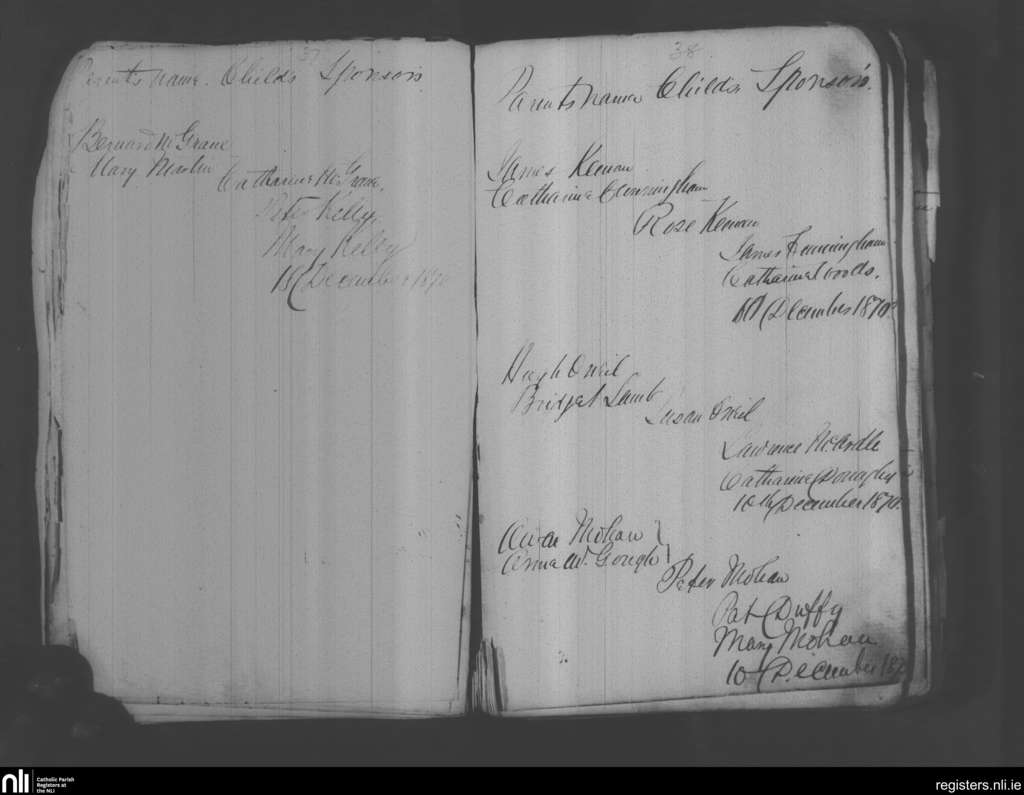 37
Parents name. Childs Sponsors
Bernard Mc Grane
Mary Martin
Catharine Mc Grane.
Peter Kelly
Mary Kelly
18 December 1870
38
Parents names Childs Sponsors.
James Keenan
Catharine Cunningham
Rose Keenan
James Cunningham
Catharine Woods.
10 December 1870
Hugh O Neil
Bridget Lamb
Susan O Neil
Lawrence McArdle
Catharine Donaghy
10th December 1870.
Owen Mohan
Anna Mc Gough
Peter Mohan
Pat Duffy
Mary Mohan
10 December 187
nli Catholic Parish
Registers at
the NLI
registers.nli.ie